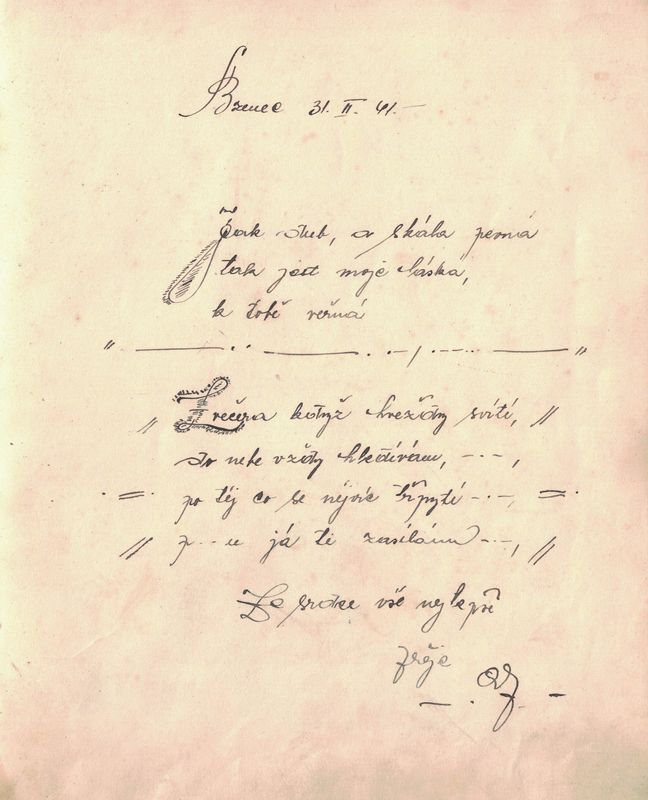 Bzenec 31. II. 41. –
Jak dub, a skála pevná
tak jest moje láska,
k tobě věrná
" ——— . . ——— . . – / . –.–. . ——— "
" Zvečera když hvězdy svítí, //
do nebe vždy hledívám, – . – ,
. = . po téj co se nejvíc třpytí – . – , = .
// p . – . u já ti zasílám – . – , //
Ze srdce vše nejlepší
přeje
— . –